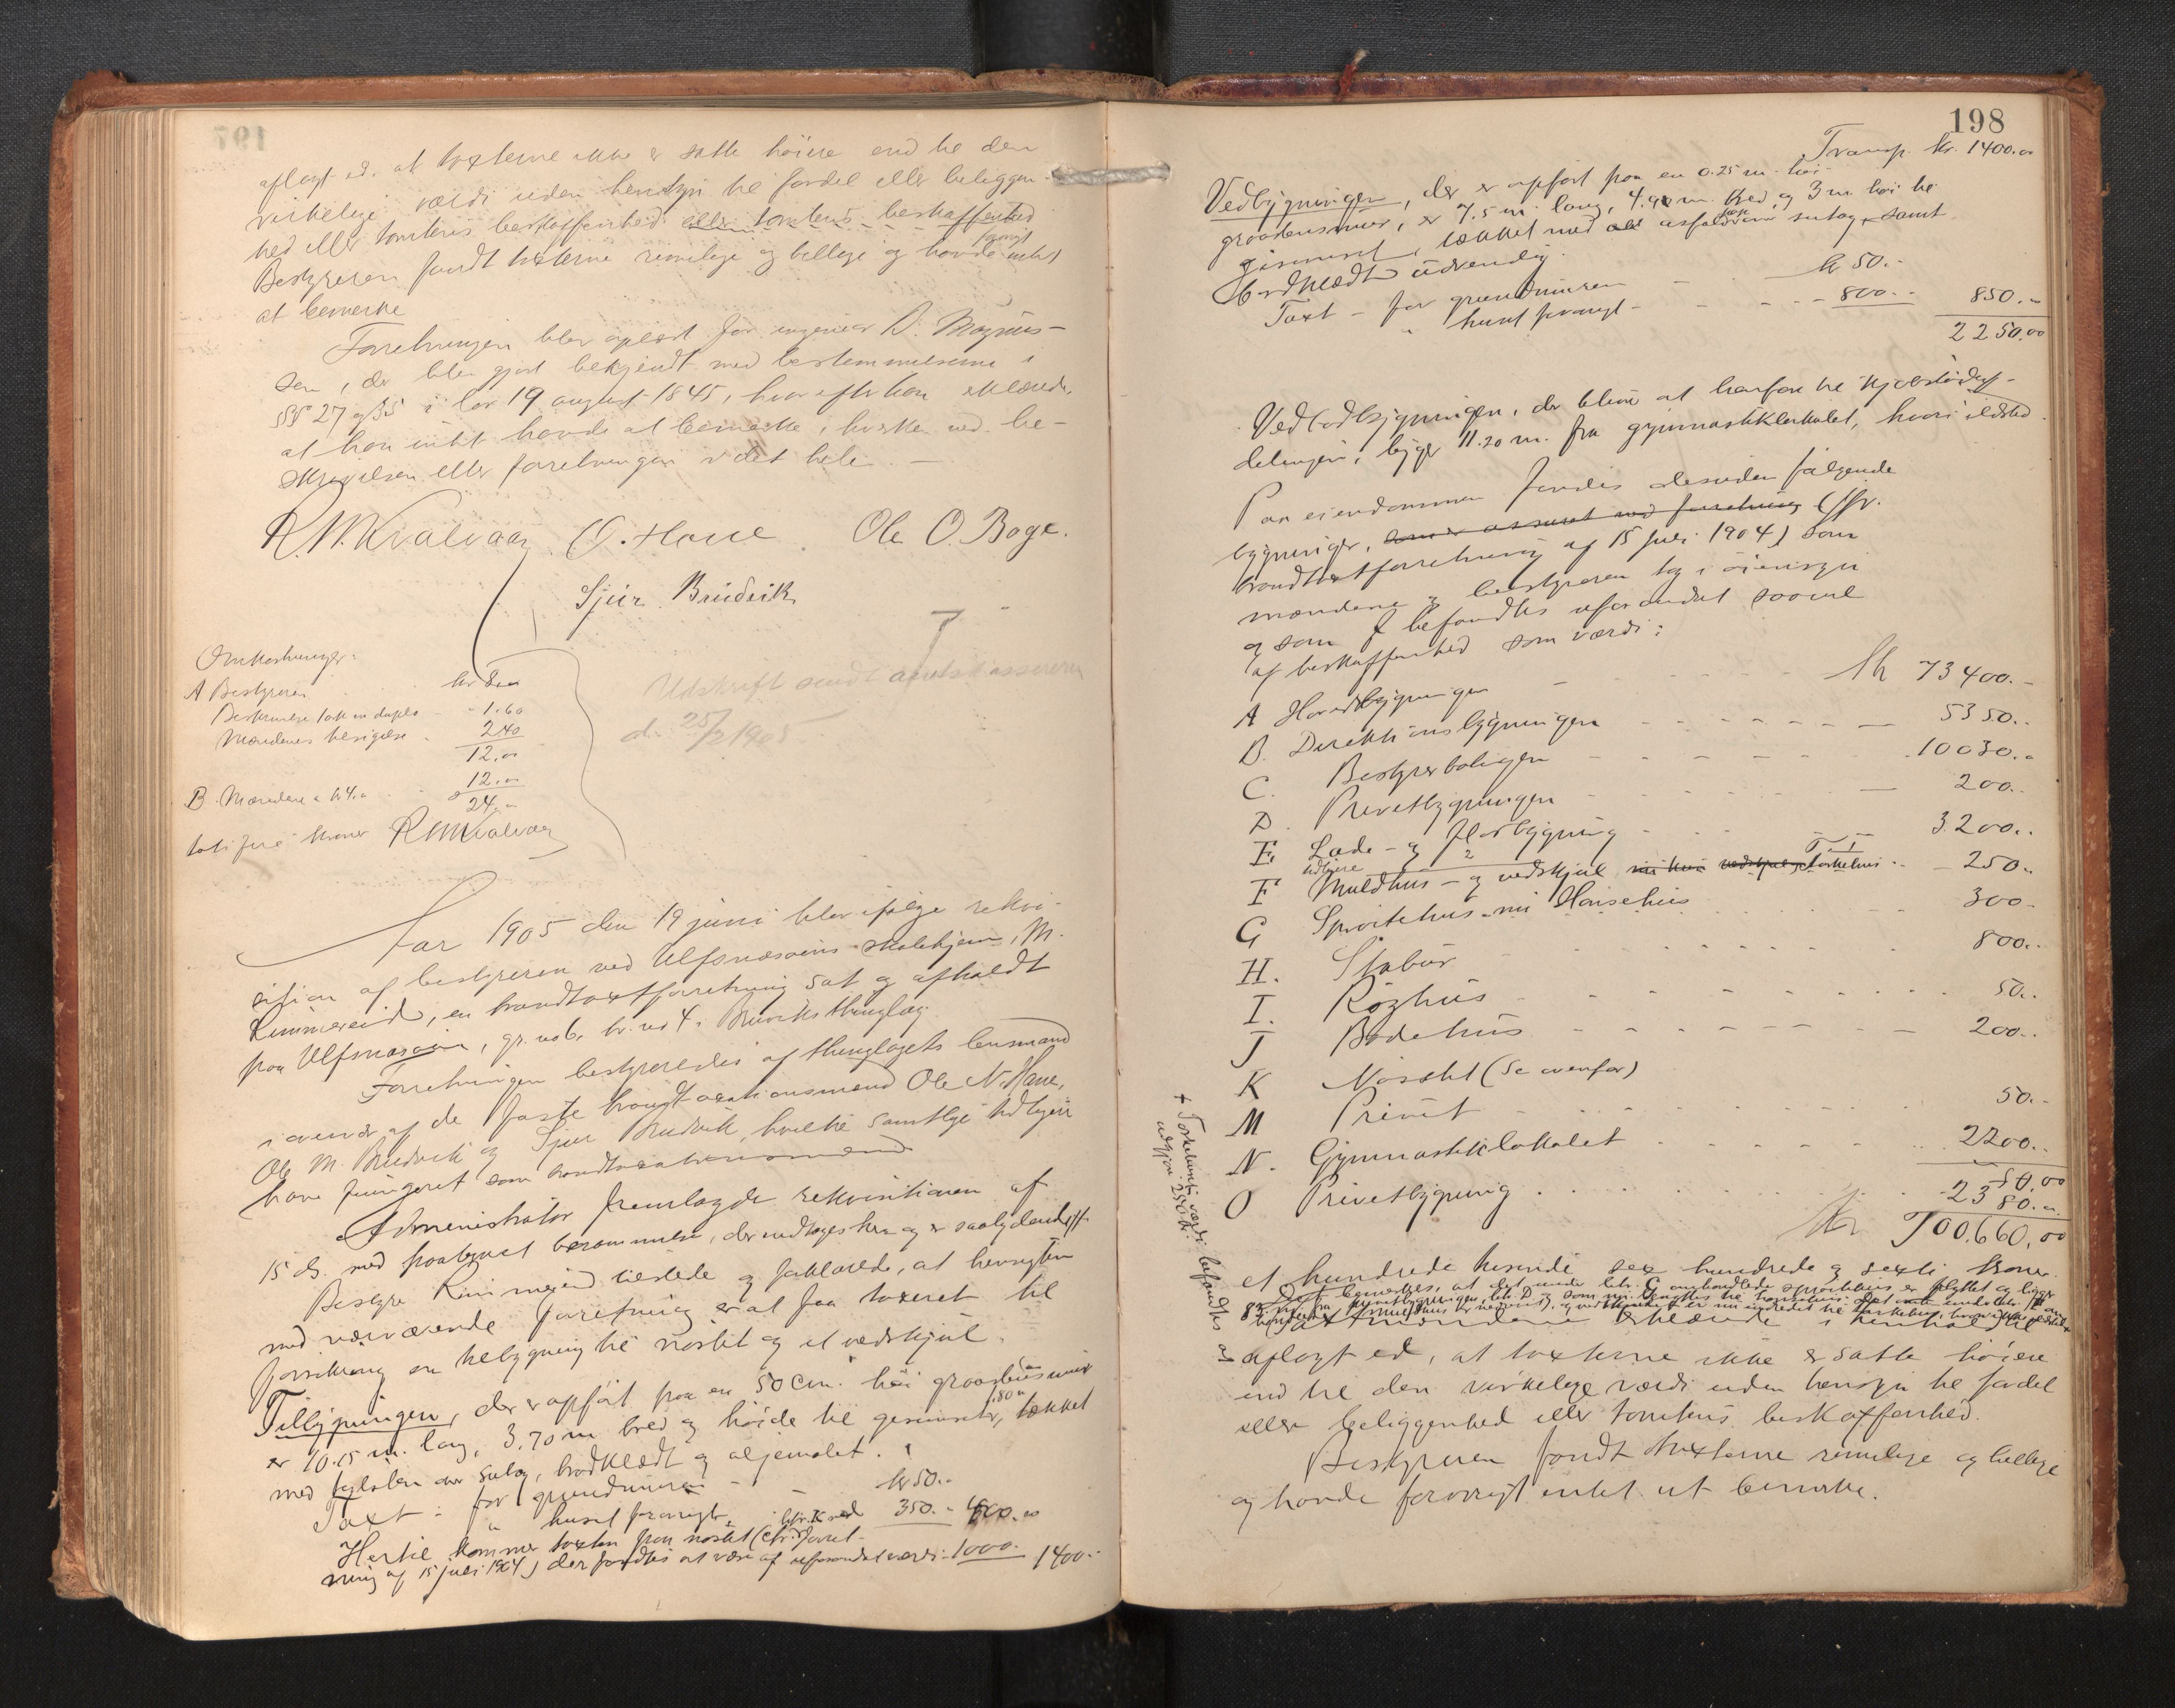 aflagt ed, at taxterne ikke er satte høiere end til den
virkelige værdi uden hensyn til fordel eller beliggen-
hed eller tomtens beskaffenhed eller tomtens beskaffenhed
Bestyreren fandt taxterne rimelige og billige og havde forøvrigt intet
at bemerke
Forretningen blev oplæst for ingeniør D. Magnus-
sen, der blev gjort bekjendt med bestemmelserne i
§§ 27 og 35 i lov 19 august 1845, hvorefter han erklærede,
at han intet havde at bemerke, hverken ved be-
skrivelsen eller forretningen i det hele. —
R. M. Kvalvaag O. Hane. Ole O. Boge.
Sjur Brudvik
Omkostninger:
A Bestyreren kr 8.00
Beskrivelse takt in duplo - 1.60
Mændenes besigelse 2.40
12.00
B. Mændene a kr 4.00 12.00
24.00
toti fire kroner R M Kvalvaag
Udskrift sendt amtskassereren
d. 25/2 1905
Aar 1905 den 19 juni blev ifølge rekvi-
sition af bestyreren ved Ulfsnesøens skolehjem, M.
Rimmereid, en brandtaxtforretning sat og afholdt
paa Ulfsnesøen, gr. no 6, br. no 4 i Bruviks thinglag
Forretningen bestyredes af thinglagets lensmand
i overvær af de faste brandtaxationsmænd Ole N. Hane,
Ole M. Brudvik og Sjur Brudvik, hvilke samtlige tidligere
have fungeret som brandtaxationsmænd
Administrator fremlagde rekvisitionen af
15 ds. med paategnet berammelse, der indtages her og er saalydende ///
Bestyrer Rimmereid tilstede og forklarede, at hensigten
med nærværende forretning er at faa taxeret til
forsikring en tilbygning til nøstet og et vedskjul.
Tilbygningen, der er opført paa en 50 cm. høi graastensmur
er 10.15 m. lang, 3.70 m bred og høide til gesimset 1.80 m, tækket
med tagsten over sutag, bordklædt og oljemalet.
Taxt - for grundmuren - kr 50.-
" huset forøvrigt - 350.- 400.00
Hertil kommer taxten paa nøstet litr. K ved (cfr. forret-
ning af 15 juli 1904) der fandtes at være af uforandret værdi - 1000.- 1400.-
198
Transp. kr. 1400.00
Vedbygningen, der er opført paa en 0.25 m. høi
graastensmur, er 7.5 m. lang, 4.90 m. bred og 3 m. høi til
gesimset, tækket med asfaltpap over sutag, samt
bordklædt udvendig.
Taxt - for grundmuren - kr 50.-
" huset forøvrigt - 800.- 850.-
2250.00
Vedbodbygningen, der bliver at henføre til Kjøbstadaf-
delingen, ligger 11.20 m. fra gymnastiklokalet, hvori ildsted.
Paa eiendommen fandtes desuden følgende
bygninger, som er assureret ved forretning (cfr.
brandtaxtforretning af 15 juli 1904) som
mændene og bestyreren tog i øiensyn
og som befandtes uforandret saavel
af beskaffenhed som værdi:
A Hovedbygningen kr 73400.-
B. Direktionsbygningen 5350.-
C. Bestyrerboligen 10030.-
D. Privetbygningen 200.-
E. Lade- og Florbygning 3200.-
F tidligere Muldhus- og vedskjul nu kun vedskjul Torkehus - 250.-
G Sprøitehus nu Hønsehus 300.-
H. Stabur 800.-
I. Røghus 50.-
J Badehus 200.-
K Nøstet (se ovenfor)
M Privet 50.-
N. Gymnastiklokalet 2200.-
O Privetbygning 50.00
2380.00
Kr 100.660,00
et hundrede tusende sex hundrede og sexti kroner.
Det bemerkes, at det under litr. G omhandlede sprøitehus er flyttet og ligger
8 m. fra privetbygningen, litr. D og som nu benyttes til hønsehus.
Taxtmændene erklærede i henhold til
aflagt ed, at taxterne ikke er satte høiere
end til den virkelige værdi uden hensyn til fordel
eller beliggenhed eller tomtens beskaffenhed.
Bestyreren fandt taxterne rimelige og billige
og havde forøvrigt intet at bemerke.
+ Torkehusets værdi befandtes at
udgjøre 250 kr.